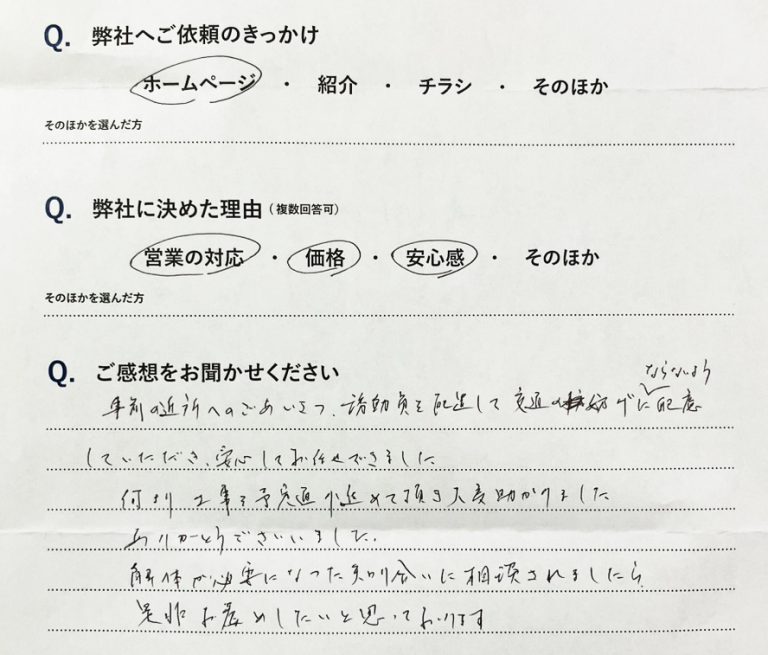 Q. 弊社へご依頼のきっかけ
ホームページ ・ 紹介 ・ チラシ ・ そのほか
そのほかを選んだ方
Q. 弊社に決めた理由(複数回答可)
営業の対応 ・ 価格 ・ 安心感 ・ そのほか
そのほかを選んだ方
Q. ご感想をお聞かせください
ならないよう
事前の近所へのごあいさつ、誘動員を配送して交通の妨げに配慮
していただき、安心してお任せできました
何より工事を予定通り進めて頂き大変助かりました
ありがとうございました。
解体が必要になった知り合いに相談されましたら、
是非お薦めしたいと思っております